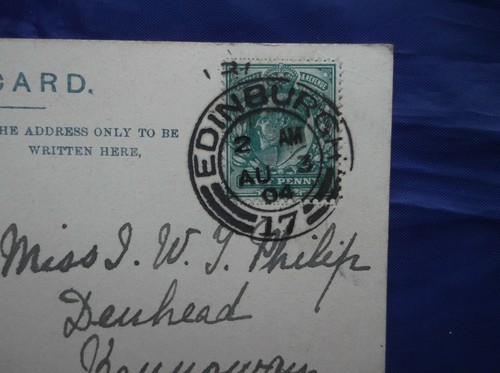 CARD.
HE ADDRESS ONLY TO BE
WRITTEN HERE,
& REVENUE
PENNY
EDINBURGH
2 AM
AU 3
04
17
Miss J. W. J. Philip
Denhead
Kennoway